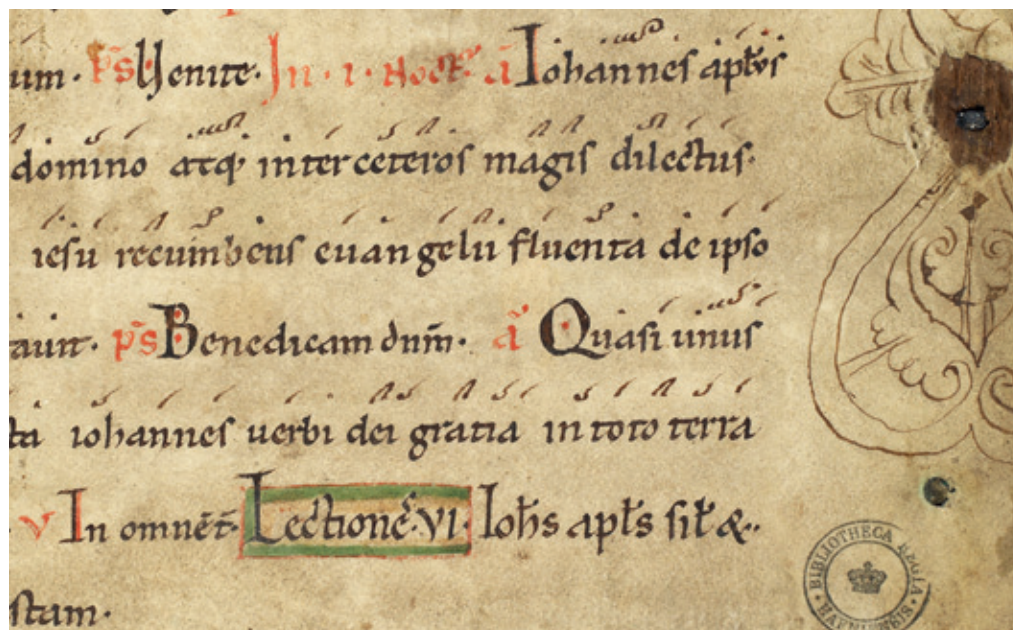 um · p̄s Venite · In · i · Noct̄ · a̅ Iohannes apl̄s
domino atq; inter ceteros magis dilectus ·
iesu recumbens euangelii fluenta de ipso
auit · p̄s Benedicam dnm̄ · a̅ Quasi unus
ta iohannes uerbi dei gratia in toto terra
v In omnē t̄ · Lectionē · VI · Ioh̄s apl̄s sił &··
stam ·
BIBLIOTHECA REGIA HAFNIENSIS